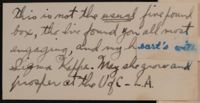 this is not the usual five pound
box, tho I've found you all most
engaging, and my heart's with
Sigma Kappa. May she grow and
prosper at the U of C - L.A.